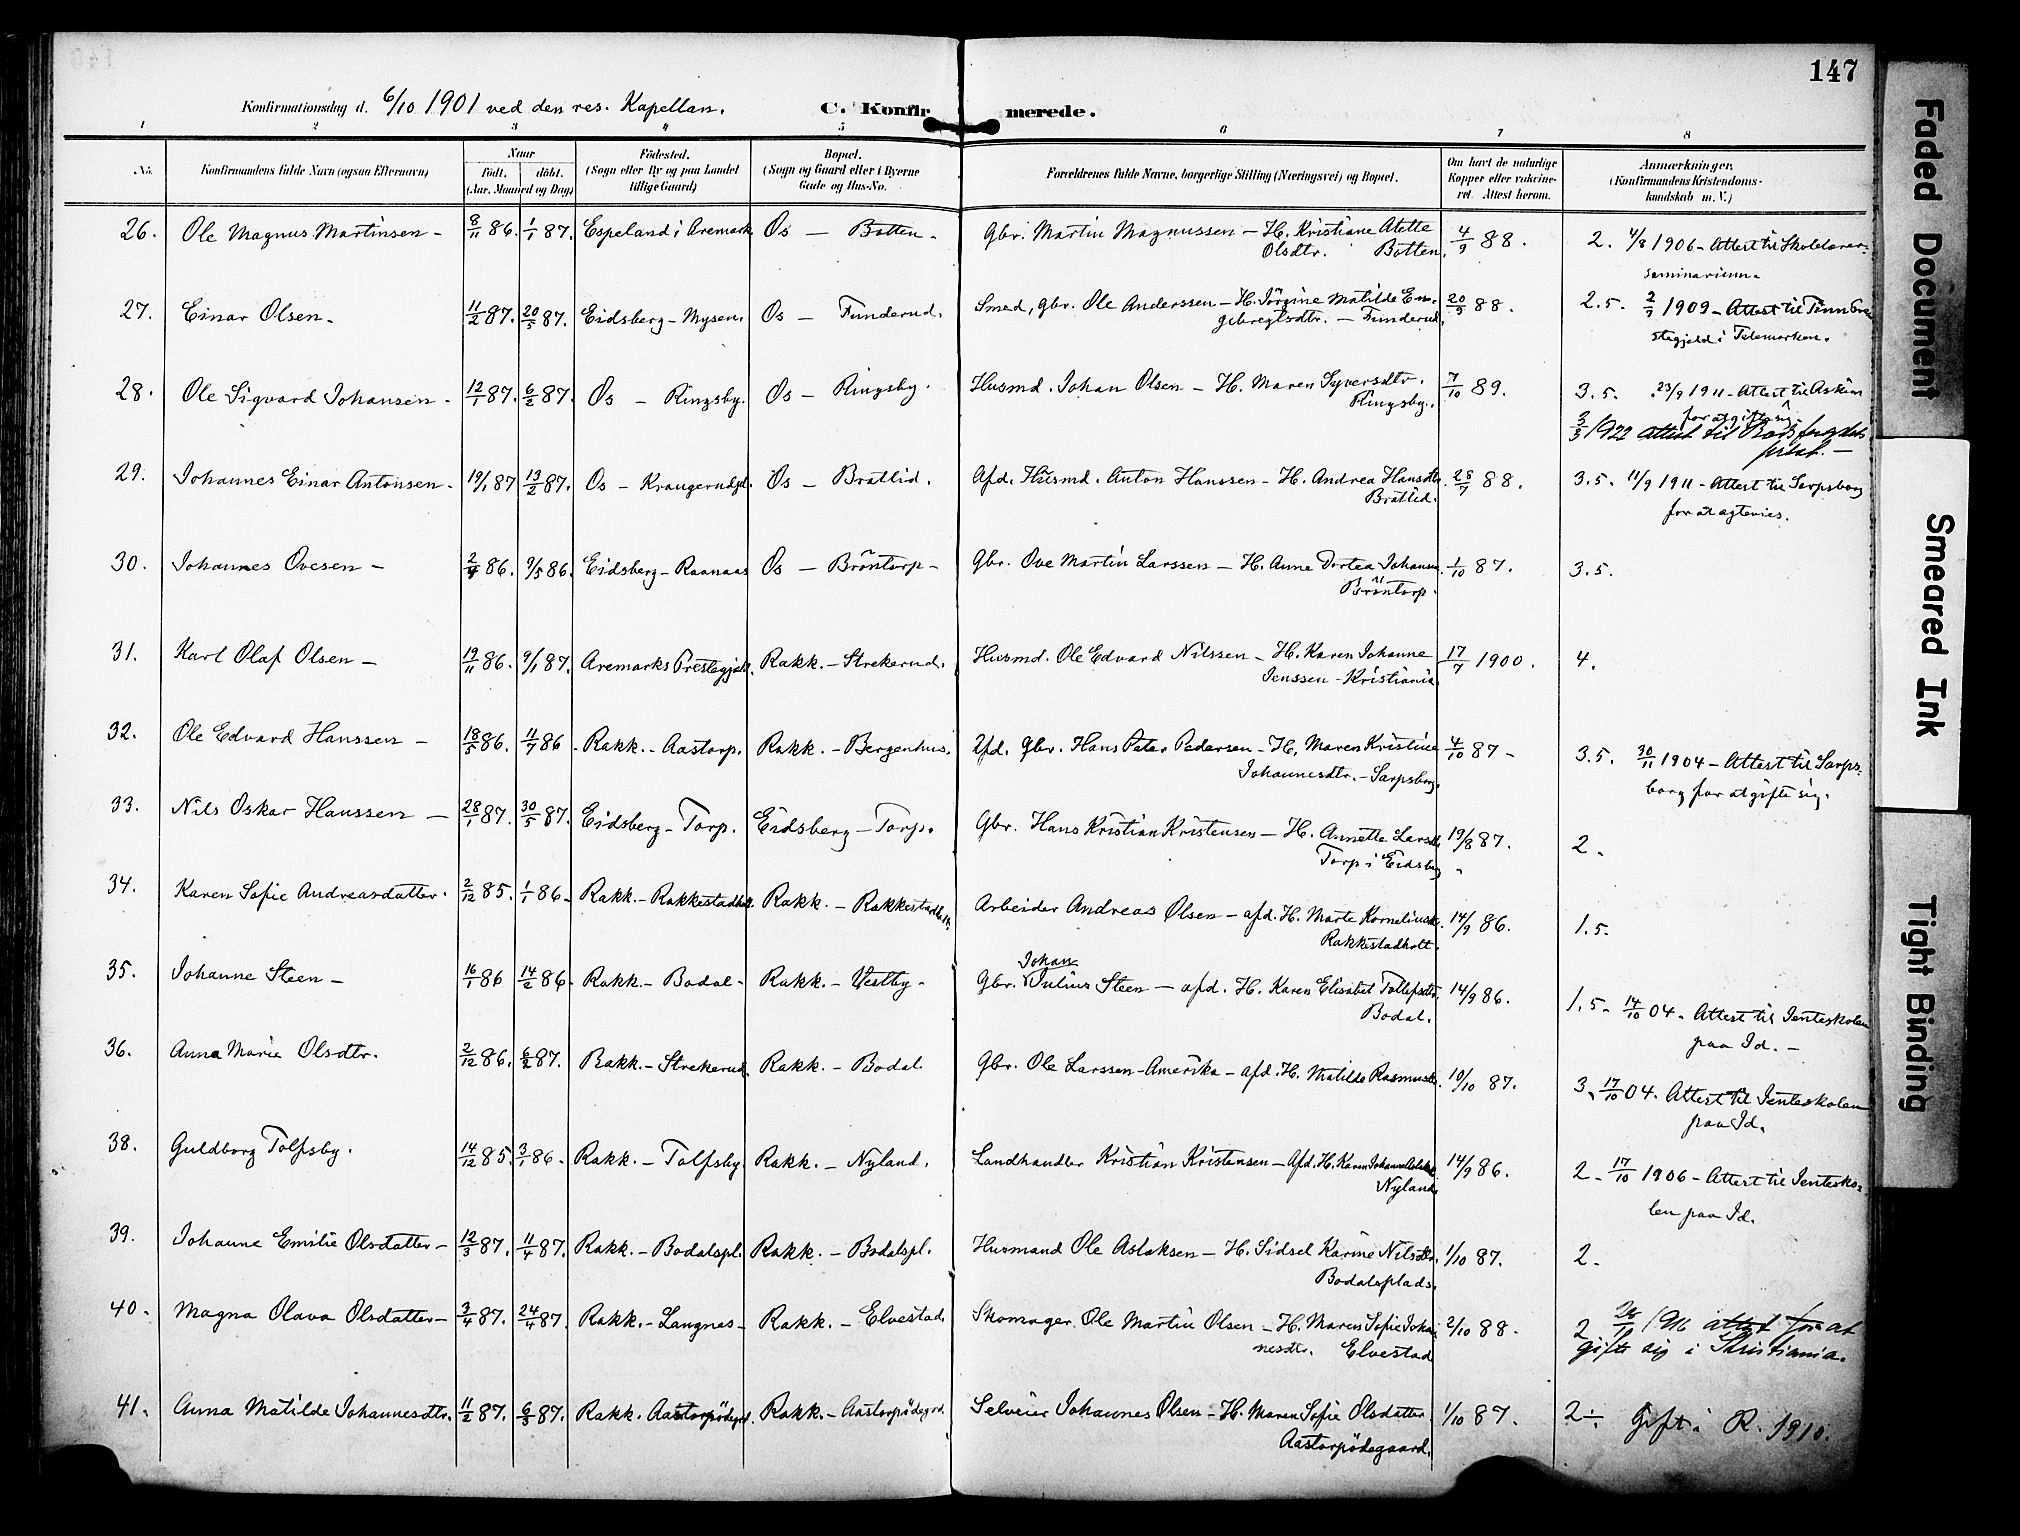 147
Konfirmationsdag d. 6/10 1901 ved den res. Kapellan.
C. Konfirmerede.
1 2 3 4 5 6 7 8
No. Konfirmandens fulde Navn (ogsaa Efternavn) Naar født. døbt. (Aar, Maaned og Dag) Fødested. (Sogn eller By og paa Landet tillige Gaard) Bopæl. (Sogn og Gaard eller i Byerne Gade og Hus-No. Forældrenes fulde Navne, borgerlige Stilling (Næringsvei) og Bopæl. Om havt de naturlige Kopper eller vaccineret. Attest herom. Anmærkninger. (Konfirmandens Kristendomskundskab m. V.)
26. Ole Magnus Martinsen - 8/11 86. 1/1 87. Espeland i Aremark Os - Botten. Gbr. Martin Magnussen - H. Kristiane Atette 4/9 88. 2. 4/8 1906 - Attest til Skolelærer-
Olsdtr. Botten. seminarium.
27. Einar Olsen. 11/2 87. 20/5 87. Eidsberg - Mysen. Os - Funderud. Smed, gbr. Ole Anderssen - H. Jörgine Matilde En- 20/9 88. 2.5. 2/7 1909 - Attest til Tinn
gebregtsdtr. - Funderud. stegjeld i Telemarken.
28. Ole Sigvard Johansen. 12/1 87. 6/2 87. Os - Ringsby. Os - Ringsby. Husmd. Johan Olsen - H. Maren Syversdtr. 7/10 89. 3.5. 23/9 1911 - Attest til Askim
Ringsby. for at gifte sig
3/3 1922 attest til
29. Johannes Einar Antonsen. 19/1 87 13/2 87. Os - Krangerudpl. Os - Bratlid. Afd. Husmd. Anton Hanssen - H. Andrea Hansdtr. 28/7 88. 3.5. 11/9 1911 - Attest til Sarpsborg
Bratlid. for at ægtevies.
30. Johannes Ovesen - 2/4 86. 9/5 86. Eidsberg - Raanaas Os - Bröntorp - Gbr. Ove Martin Larssen - H. Anne Dortea Johansen. 1/10 87. 3.5.
Bröntorp.
31. Karl Olaf Olsen - 19/11 86. 9/1 87. Aremarks Prestegjeld. Rakk. - Strekerud. Husmd. Ole Edvard Nilssen - H. Karen Johanne 17/7 1900. 4.
Jenssen - Kristiania.
32. Ole Edvard Hanssen - 18/5 86. 11/7 86 - Rakk. - Aastorp. Rakk. - Bergenhus. Afd. Gbr. Hans Peter Pedersen - H. Maren Kristine 4/10 87 - 3.5. 30/11 1904 - Attest til Sarps-
Johannesdtr. - Sarpsborg. borg for at gifte sig.
33. Nils Oskar Hanssen - 28/1 87. 30/5 87. Eidsberg - Torp. Eidsberg - Torp. Gbr. Hans Kristian Kristensen - H. Annette Larsdtr. 19/8 87. 2.
Torp i Eidsberg
34. Karen Sofie Andreasdatter. 2/12 85. 1/1 86 - Rakk. - Rakkestadholt Rakk. - Rakkestadholt. Arbeider Andreas Olsen - afd. H. Marte Korneliusdtr. 14/9 86. 1.5.
Rakkestadholt.
35. Johanne Steen - 16/1 86 14/2 86. Rakk. - Bodal - Rakk. - Vestby - Gbr. Johan Julius Steen - afd. H. Karen Elisabet Tollefsdtr. 14/9 86. 1.5 - 14/10 04. Attest til Jenteskolen
Bodal. paa Id. -
36. Anna Marie Olsdtr. 2/12 86. 6/2 87. Rakk. - Strekerud. Rakk. - Bodal Gbr. Ole Larssen - Amerika - afd. H. Matilde Rasmusdtr. 10/10 87. 3. 17/10 04. Attest til Jenteskolen
paa Id.
38. Guldborg Tolfsby. 14/12 85. 3/1 86 - Rakk. - Tolfsby. Rakk. - Nyland. Landhandler Kristian Kristensen - Afd. H. Karen Johanne 14/9 86. 2 - 17/10 1906 - Attest til Jentesko-
Nyland. len paa Id.
39. Johanne Emilie Olsdatter - 12/3 87. 11/4 87. Rakk. - Bodalspl. Rakk. - Bodalspl. Husmand Ole Aslaksen - H. Sidsel Karine Nilsdtr. 1/10 87. 2.
Bodalsplads.
40. Magna Olava Olsdatter - 3/4 87. 24/4 87. Rakk. - Langnes - Rakk. - Elvestad. Skomager Ole Martin Olsen - H. Maren Sofie Johan- 2/10 88. 2 1916 attest for at
nesdtr. Elvestad gifte sig i Kristiania.
41. Anna Matilde Johannesdtr. 11/2 87. 6/3 87. Rakk. Aastorpödegrd. Rakk. - Aastorpödegrd. Selveier Johannes Olsen - H. Maren Sofie Olsdatter 1/10 87. 2 ÷ Gift i R. 1910.
Aastorpödegaard.
Faded Document
Smeared Ink
Tight Binding